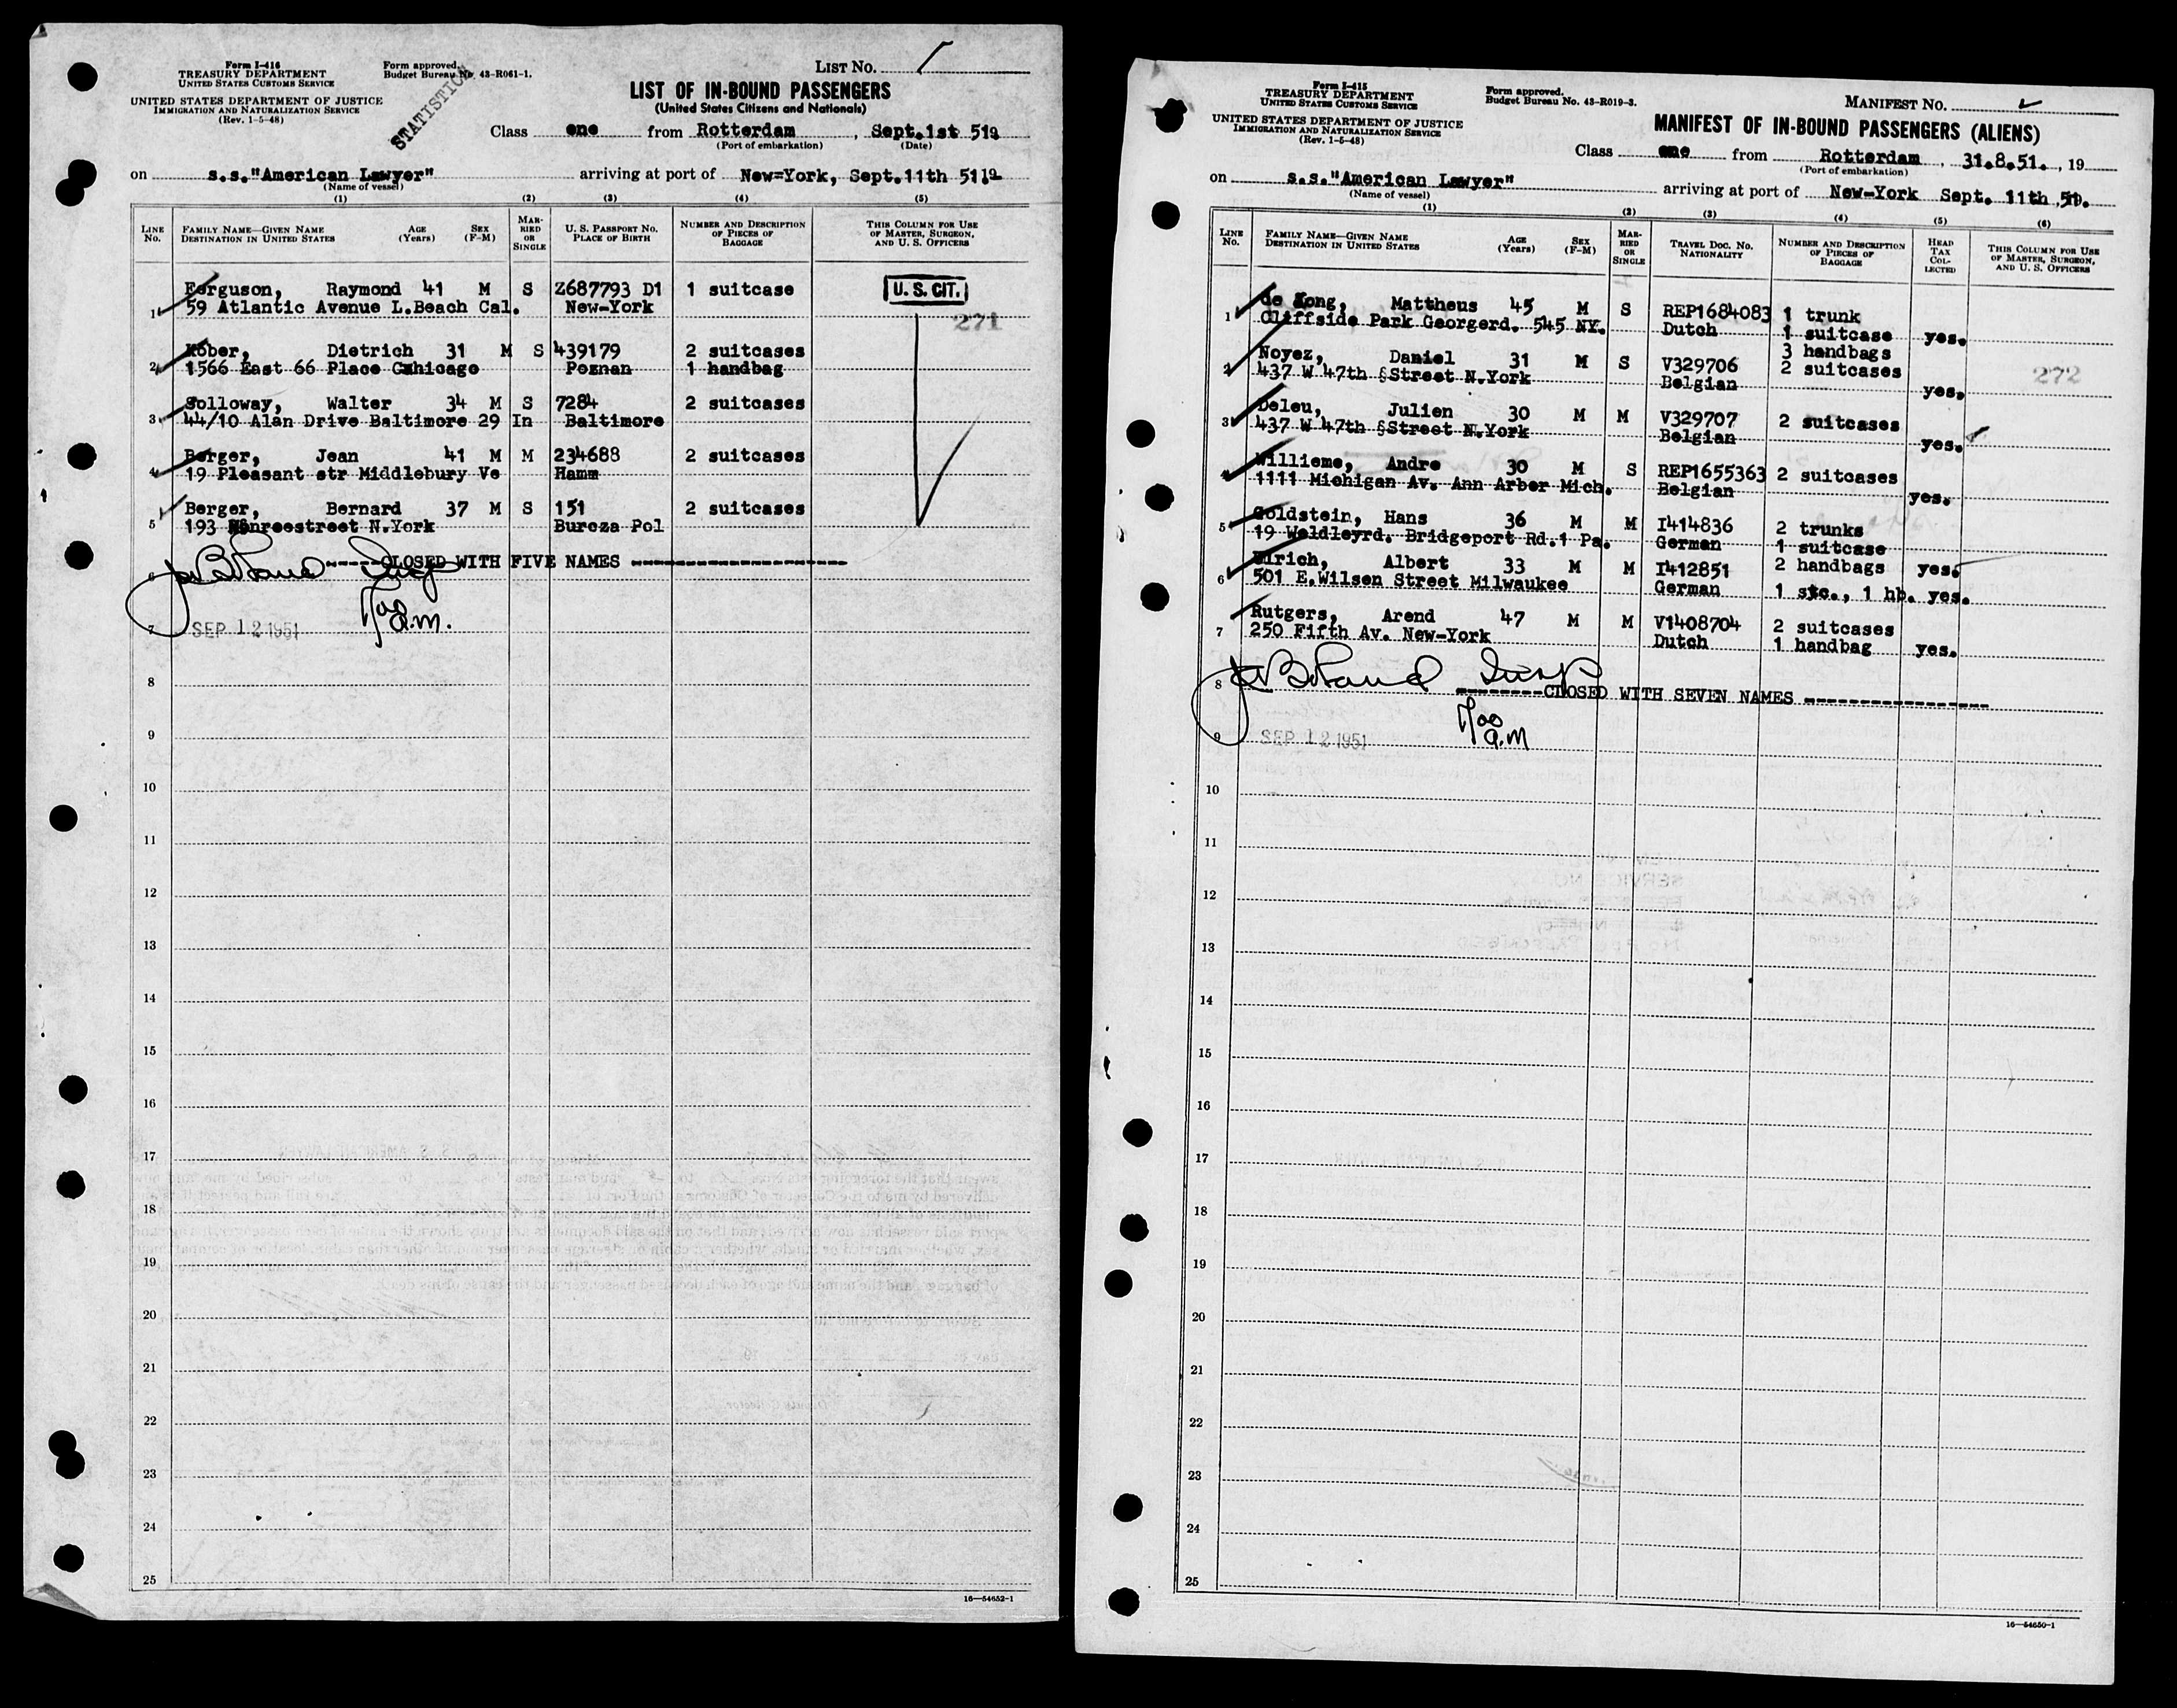 Form I-416
TREASURY DEPARTMENT
UNITED STATES CUSTOMS SERVICE
UNITED STATES DEPARTMENT OF JUSTICE
IMMIGRATION AND NATURALIZATION SERVICE
(Rev. 1-5-48)
Form approved.
Budget Bureau No. 43-R061-1.
STATISTICS
LIST No. 1
LIST OF IN-BOUND PASSENGERS
(United States Citizens and Nationals)
Class one from Rotterdam, Sept.1st 519
(Port of embarkation) (Date)
on s.s."American Lawyer" arriving at port of New=York, Sept.11th 51 19
(Name of vessel)
(1) (2) (3) (4) (5)
LINE No. FAMILY NAME—GIVEN NAME DESTINATION IN UNITED STATES AGE (Years) SEX (F-M) MARRIED OR SINGLE U. S. PASSPORT No. PLACE OF BIRTH NUMBER AND DESCRIPTION OF PIECES OF BAGGAGE THIS COLUMN FOR USE OF MASTER, SURGEON, AND U. S. OFFICERS
Ferguson, Raymond 41 M S Z687793 D1 1 suitcase U. S. CIT.
1 59 Atlantic Avenue L.Beach Cal. New-York 271
Kober, Dietrich 31 M S 439179 2 suitcases
2 1566 East 66 Place Chicago Poznan 1 handbag
Solloway, Walter 34 M S 7284 2 suitcases
3 44/10 Alan Drive Baltimore 29 In Baltimore
Berger, Jean 41 M M 234688 2 suitcases
4 19 Pleasant str Middlebury Ve Hamm
Berger, Bernard 37 M S 151 2 suitcases
5 193 Monroestreet N.York Burcza Pol
6 -----CLOSED WITH FIVE NAMES -----------------
Insp
7 SEP 12 1951 700 a.m.
8
9
10
11
12
13
14
15
16
17
18
19
20
21
22
23
24
25
16—54652-1
Form I-415
TREASURY DEPARTMENT
UNITED STATES CUSTOMS SERVICE
UNITED STATES DEPARTMENT OF JUSTICE
IMMIGRATION AND NATURALIZATION SERVICE
(Rev. 1-5-48)
Form approved.
Budget Bureau No. 43-R019-3.
MANIFEST No.
MANIFEST OF IN-BOUND PASSENGERS (ALIENS)
Class one from Rotterdam, 31.8.51., 19
(Port of embarkation)
on s.s."American Lawyer" arriving at port of New-York Sept. 11th, 51.
(Name of vessel)
(1) (2) (3) (4) (5) (6)
LINE No. FAMILY NAME—GIVEN NAME DESTINATION IN UNITED STATES AGE (Years) SEX (F-M) MARRIED OR SINGLE TRAVEL DOC. No. NATIONALITY NUMBER AND DESCRIPTION OF PIECES OF BAGGAGE HEAD TAX COLLECTED THIS COLUMN FOR USE OF MASTER, SURGEON, AND U. S. OFFICERS
de Jong, Mattheus 45 M S REP1684083 1 trunk
1 Cliffside Park Georgerd. 545 NY. Dutch 1 suitcase yes.
3 handbags
Noyez, Daniel 31 M S V329706 2 suitcases 272
2 437 W 47th §Street N.York Belgian yes.
Deleu, Julien 30 M M V329707 2 suitcases
3 437 W 47th §Street N.York Belgian yes.
Willieme, Andre 30 M S REP1655363 2 suitcases
4 1111 Michigan Av. Ann Arbor Mich. Belgian yes.
Goldstein, Hans 36 M M I414836 2 trunks
5 19 Weldleyrd. Bridgeport Rd.1 Pa. German 1 suitcase
Ulrich, Albert 33 M M I412851 2 handbags yes.
6 501 E.Wilsen Street Milwaukee German 1 stc., 1 hb. yes.
Rutgers, Arend 47 M M V1408704 2 suitcases
7 250 Fifth Av. New-York Dutch 1 handbag yes.
Insp
8 --------CLOSED WITH SEVEN NAMES -----------------
9 SEP 12 1951 700 a.m
10
11
12
13
14
15
16
17
18
19
20
21
22
23
24
25
16—54650-1